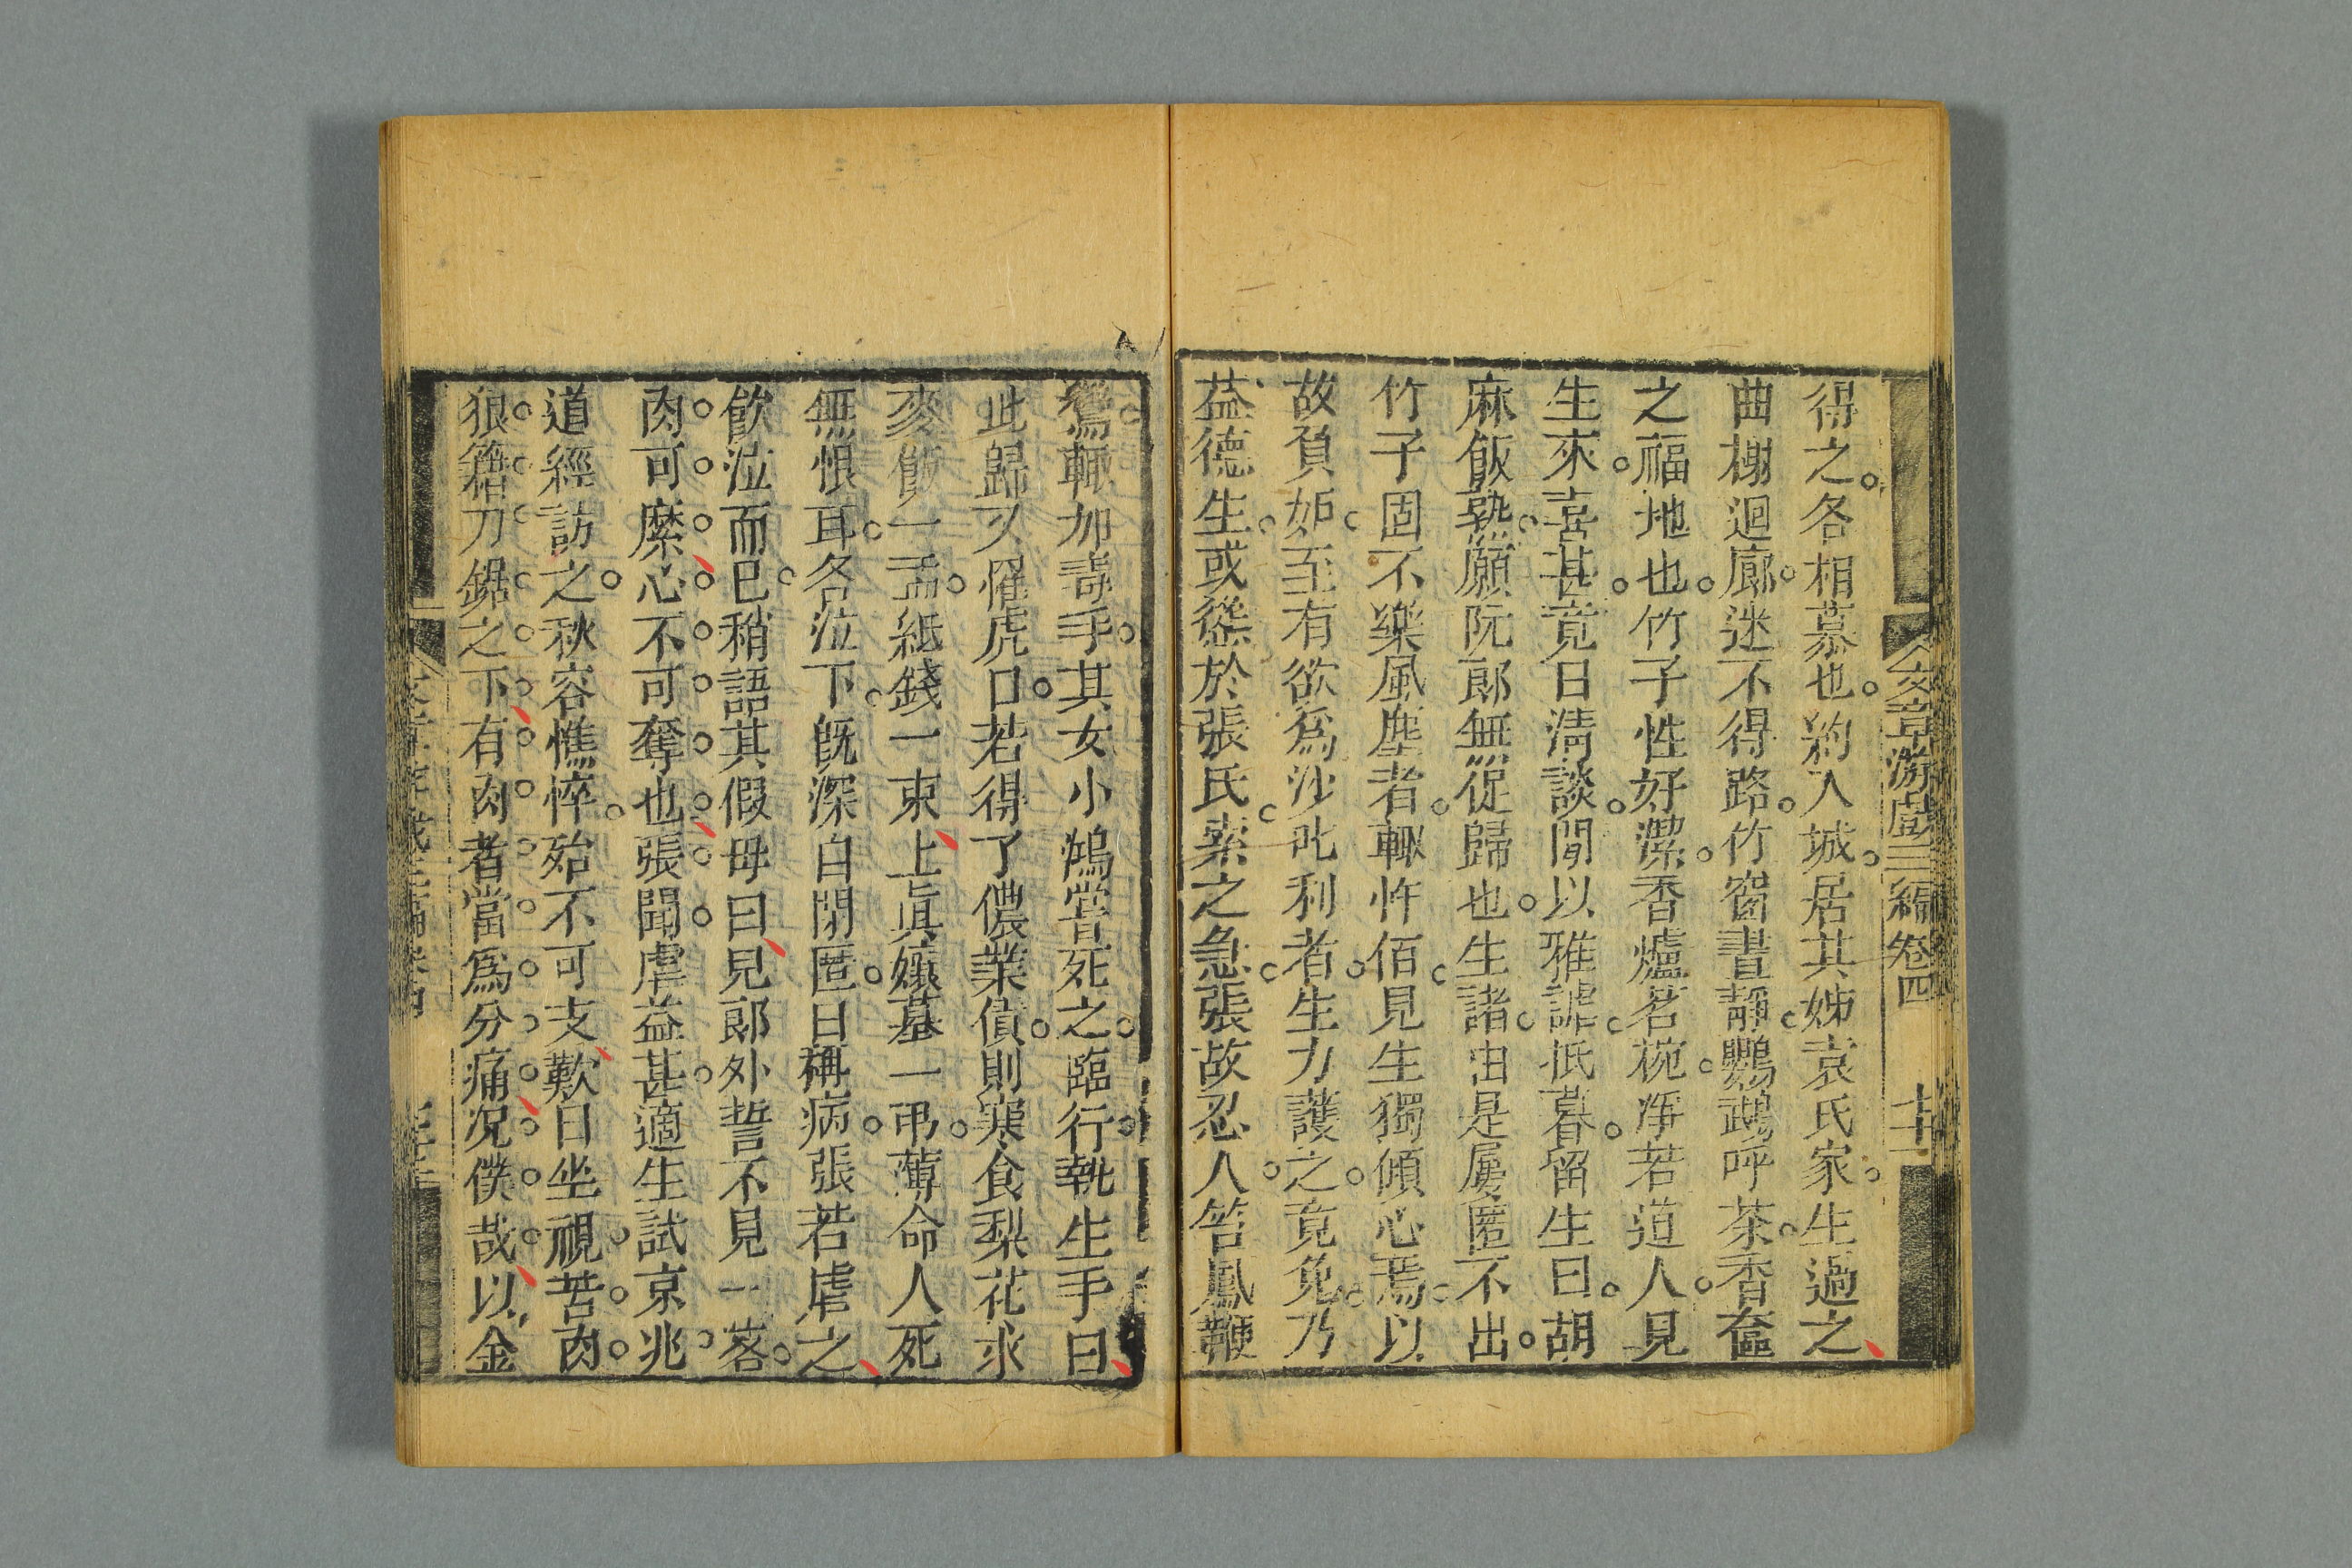 文章游戲三編卷四　十一
得之各相慕也剡入城居其姊袁氏家生過之
曲榭迴廊迷不得路竹窗晝靜鸚鵡呼茶香奩
之福地也竹子性好潔香爐茗椀淨若道人見
生來喜甚竟日淸談間以雅謔抵暮留生曰胡
麻飯熟願阮郎無促歸也生諾由是屢匿不出
竹子固不樂風塵者輒忤佰見生獨傾心焉以
故負妬至有欲爲沙叱利者生力護之竟免乃
益德生或慫於張氏索之急張故忍人笞鳳鞭
鸞輒加毒手其女小鴻嘗死之臨行執生手曰
此歸又罹虎口若得了儂業債則寒食梨花求
麥飯一盂紙錢一束上眞孃墓一弔薄命人死
無恨耳各泣下旣深自閉匿日稱病張若虐之
飮泣而已稍語其假母曰見郎外誓不見一客
肉可糜心不可奪也張聞虐益甚適生試京兆
道經訪之秋容憔悴殆不可支歎曰坐視苦肉
狼籍刀鋸之下有肉者當爲分痛况僕哉以金